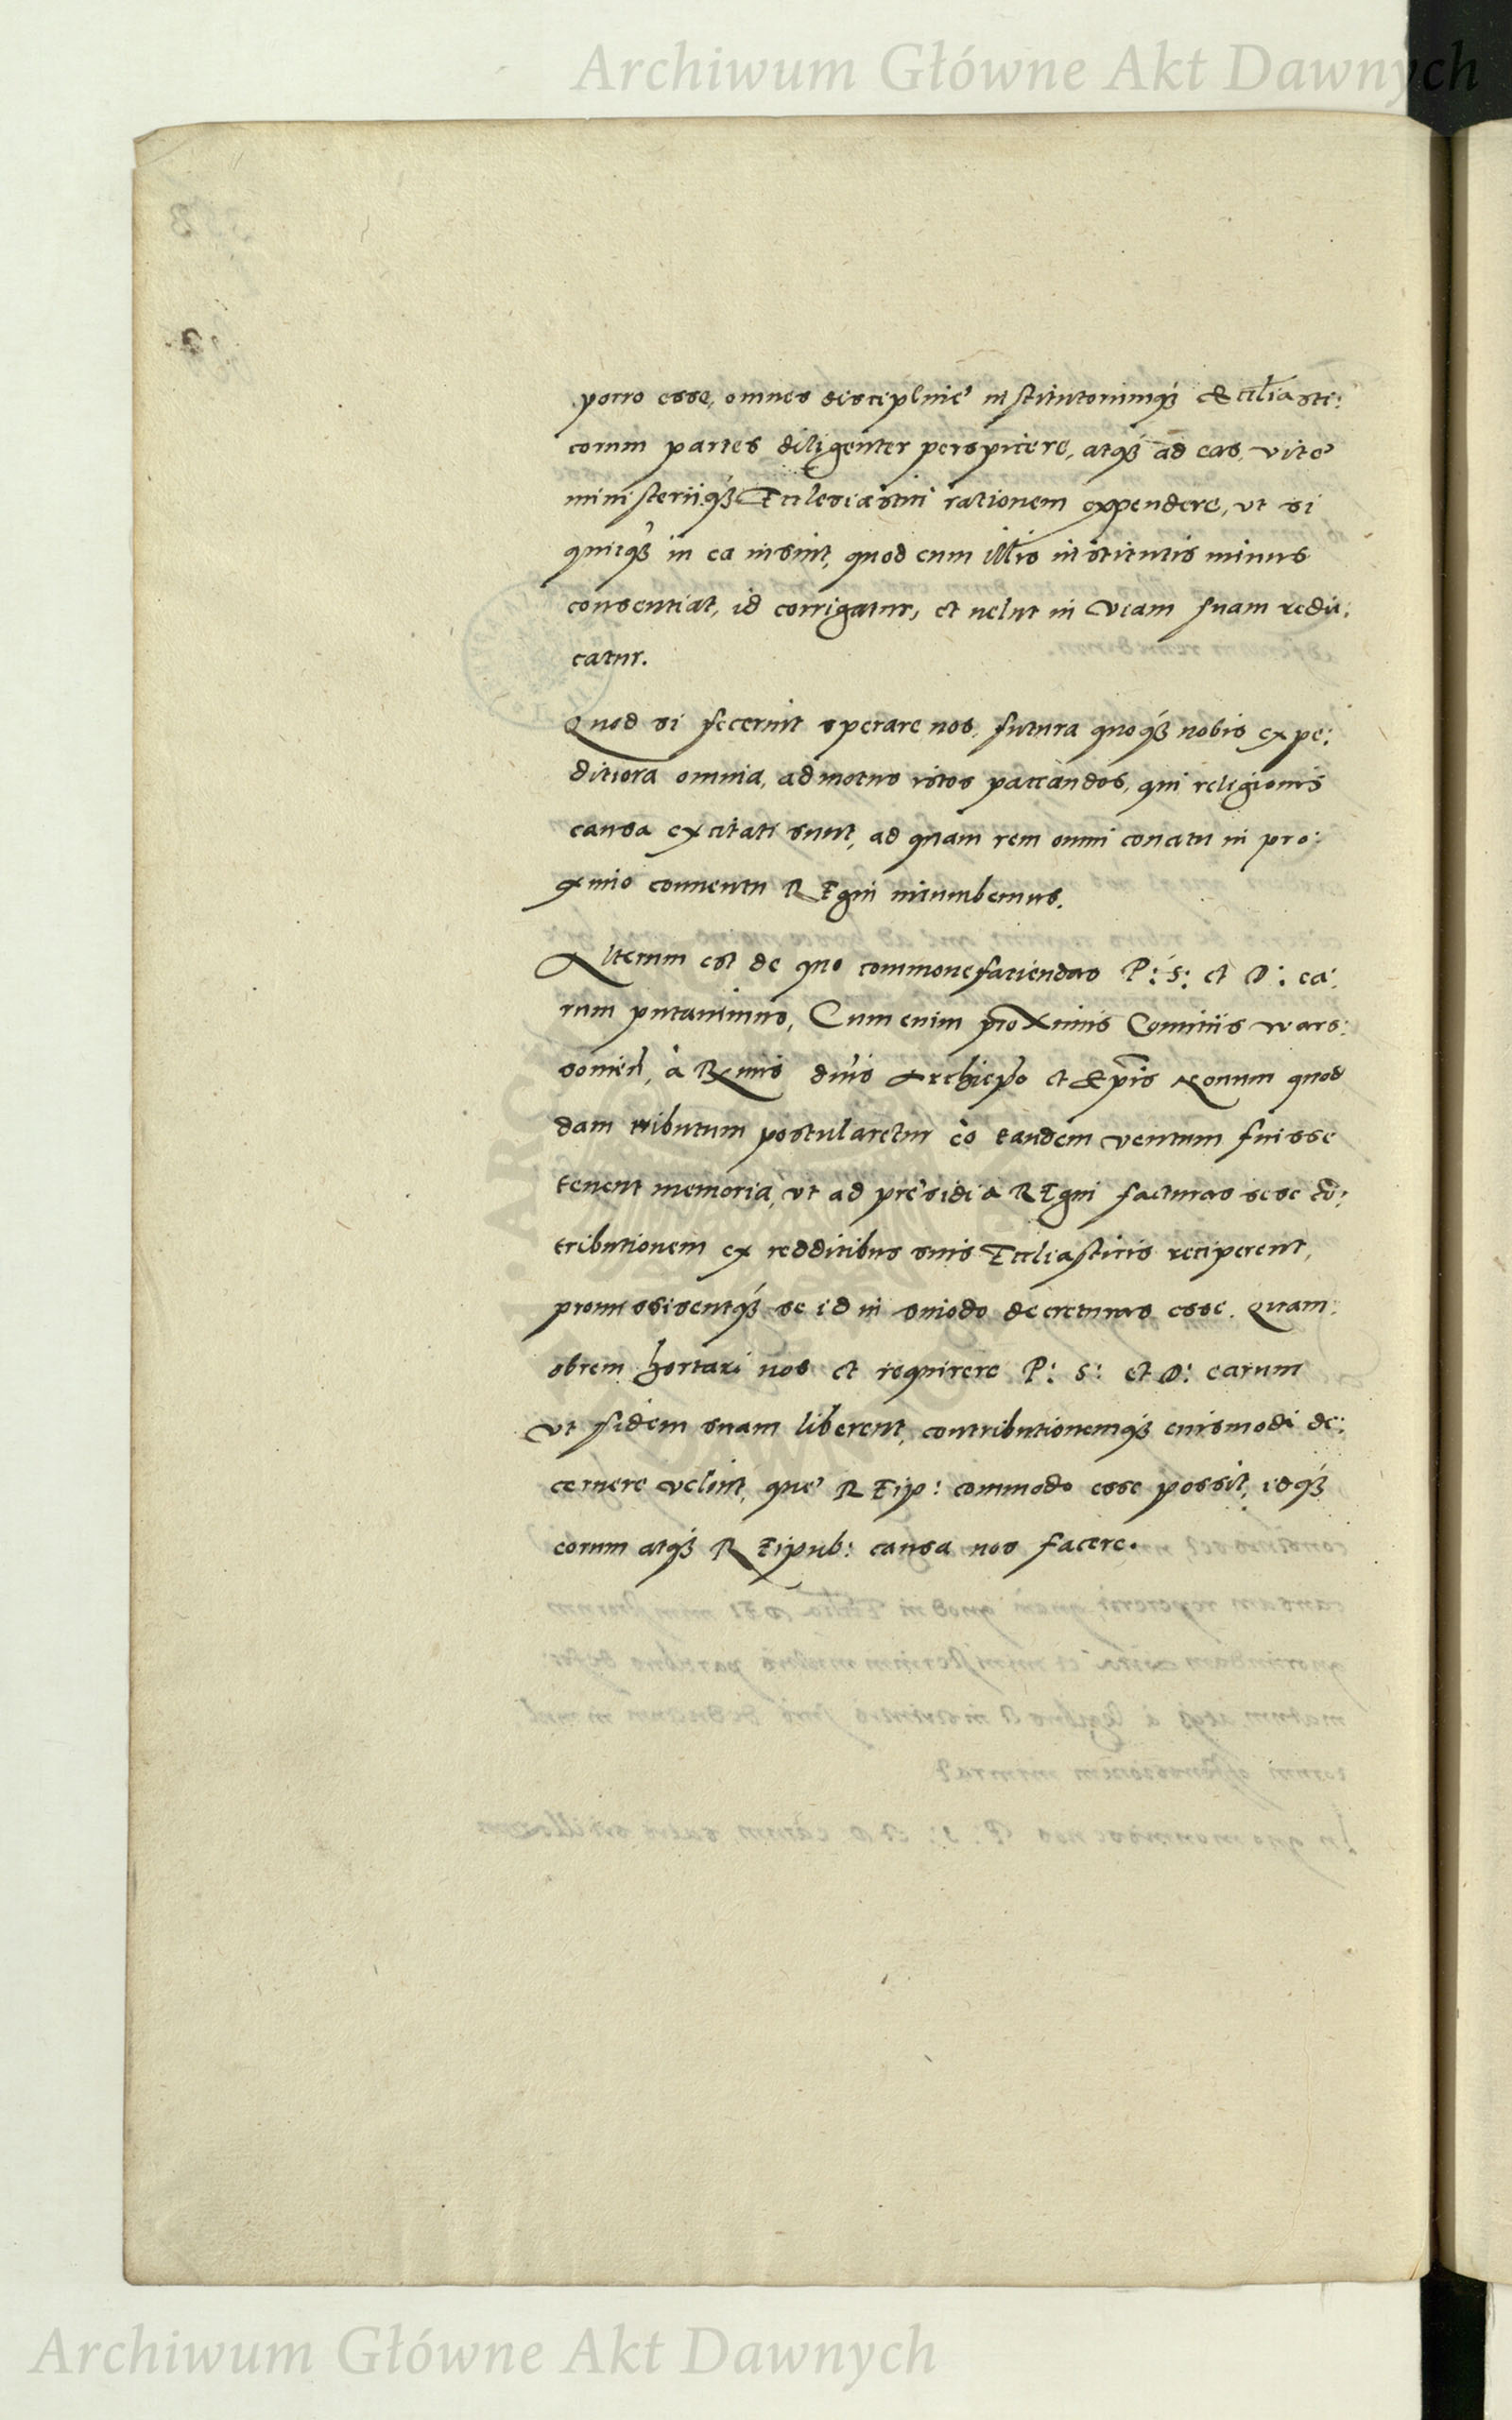 Archiwum Główne Akt Dawnych
porro esse, omnes discipline institutorumq́3 Eccl̃iasti:
corum partes diligenter perspicere, atq́3 ad eas, vite
ministeriiq́3 Ecclesiastici rationem expendere, vt si
quicq́3 in ea insint, quod cum illis institutis minus
consentiat, id corrigatur, et velut in viam suam redu:
catur.
Quod si fecerint sperare nos, futura quoq́3 nobis expe:
ditiora omnia, ad motus istos pacandos, qui religionis
causa excitati sunt, ad quam rem omni conatu in pro:
ximo conuentu REgni incumbemus.
Alterum est de quo commonefaciendas P: S: et D: ea:
rum putauimus, Cum enim proximis Comitiis wars:
souien̄, à Rx̃mis dn̄is Archiep̄o et Ep̄is nouum quod
dam tributum postularetur eò tandem ventum fuisse
tenent memoria, vt ad presidia REgni facturas sese cō:
tributionem ex redditibus suis Eccl̃iasticis reciperent,
promississentq́3 se id in sinodo decreturas esse. Quam:
obrem hortari nos et requirere P: S: et D: earum
vt fidem suam liberent, contributionemq́3 eiusmodi de:
cernere velint, que REip: commodo esse possit, idq́3
eorum atq́3 REipub: causa nos facere.
Archiwum Główne Akt Dawnych